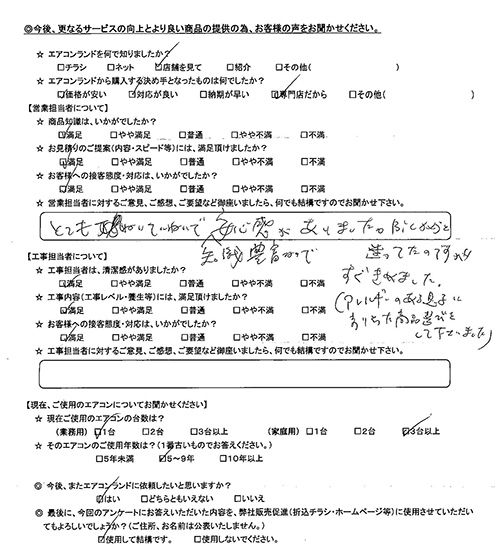 ◎今後、更なるサービスの向上とより良い商品の提供の為、お客様の声をお聞かせください。
☆ エアコンランドを何で知りましたか?
□チラシ □ネット ☑店舗を見て □紹介 □その他( )
☆ エアコンランドから購入する決め手となったものは何でしたか?
☑価格が安い ☑対応が良い □納期が早い ☑専門店だから □その他( )
【営業担当者について】
☆ 商品知識は、いかがでしたか?
☑満足 □やや満足 □普通 □やや不満 □不満
☆ お見積りのご提案(内容・スピード等)には、満足頂けましたか?
☑満足 □やや満足 □普通 □やや不満 □不満
☆ お客様への接客態度・対応は、いかがでしたか?
☑満足 □やや満足 □普通 □やや不満 □不満
☆ 営業担当者に対するご意見、ご感想、ご要望など御座いましたら、何でも結構ですのでお聞かせ下さい。
とても ていねいで 安心感がありました。
知識豊富で
迷ってたのですが
【工事担当者について】
☆ 工事担当者は、清潔感がありましたか?
すぐきめました。
☑満足 □やや満足 □普通 □やや不満 □不満
(アレルギーのある息子に
☆ 工事内容(工事レベル・養生等)には、満足頂けましたか?
☑満足 □やや満足 □普通 □やや不満 □不満
商品選びを
☆ お客様への接客態度・対応は、いかがでしたか?
して下さいました)
☑満足 □やや満足 □普通 □やや不満 □不満
☆ 工事担当者に対するご意見、ご感想、ご要望など御座いましたら、何でも結構ですのでお聞かせ下さい。
【現在、ご使用のエアコンについてお聞かせください】
☆ 現在ご使用のエアコンの台数は?
(業務用) ☑1台 □2台 □3台以上 (家庭用) □1台 □2台 ☑3台以上
☆ そのエアコンのご使用年数は?(1番古いものでお答えください。)
□5年未満 ☑5~9年 □10年以上
◎ 今後、またエアコンランドに依頼したいと思いますか?
☑はい □どちらともいえない □いいえ
◎ 最後に、今回のアンケートにお答えいただいた内容を、弊社販売促進(折込チラシ・ホームページ等)に使用させていただい
てもよろしいでしょうか?(ご住所、お名前は公表いたしません。)
☑使用して結構です。 □使用しないでください。